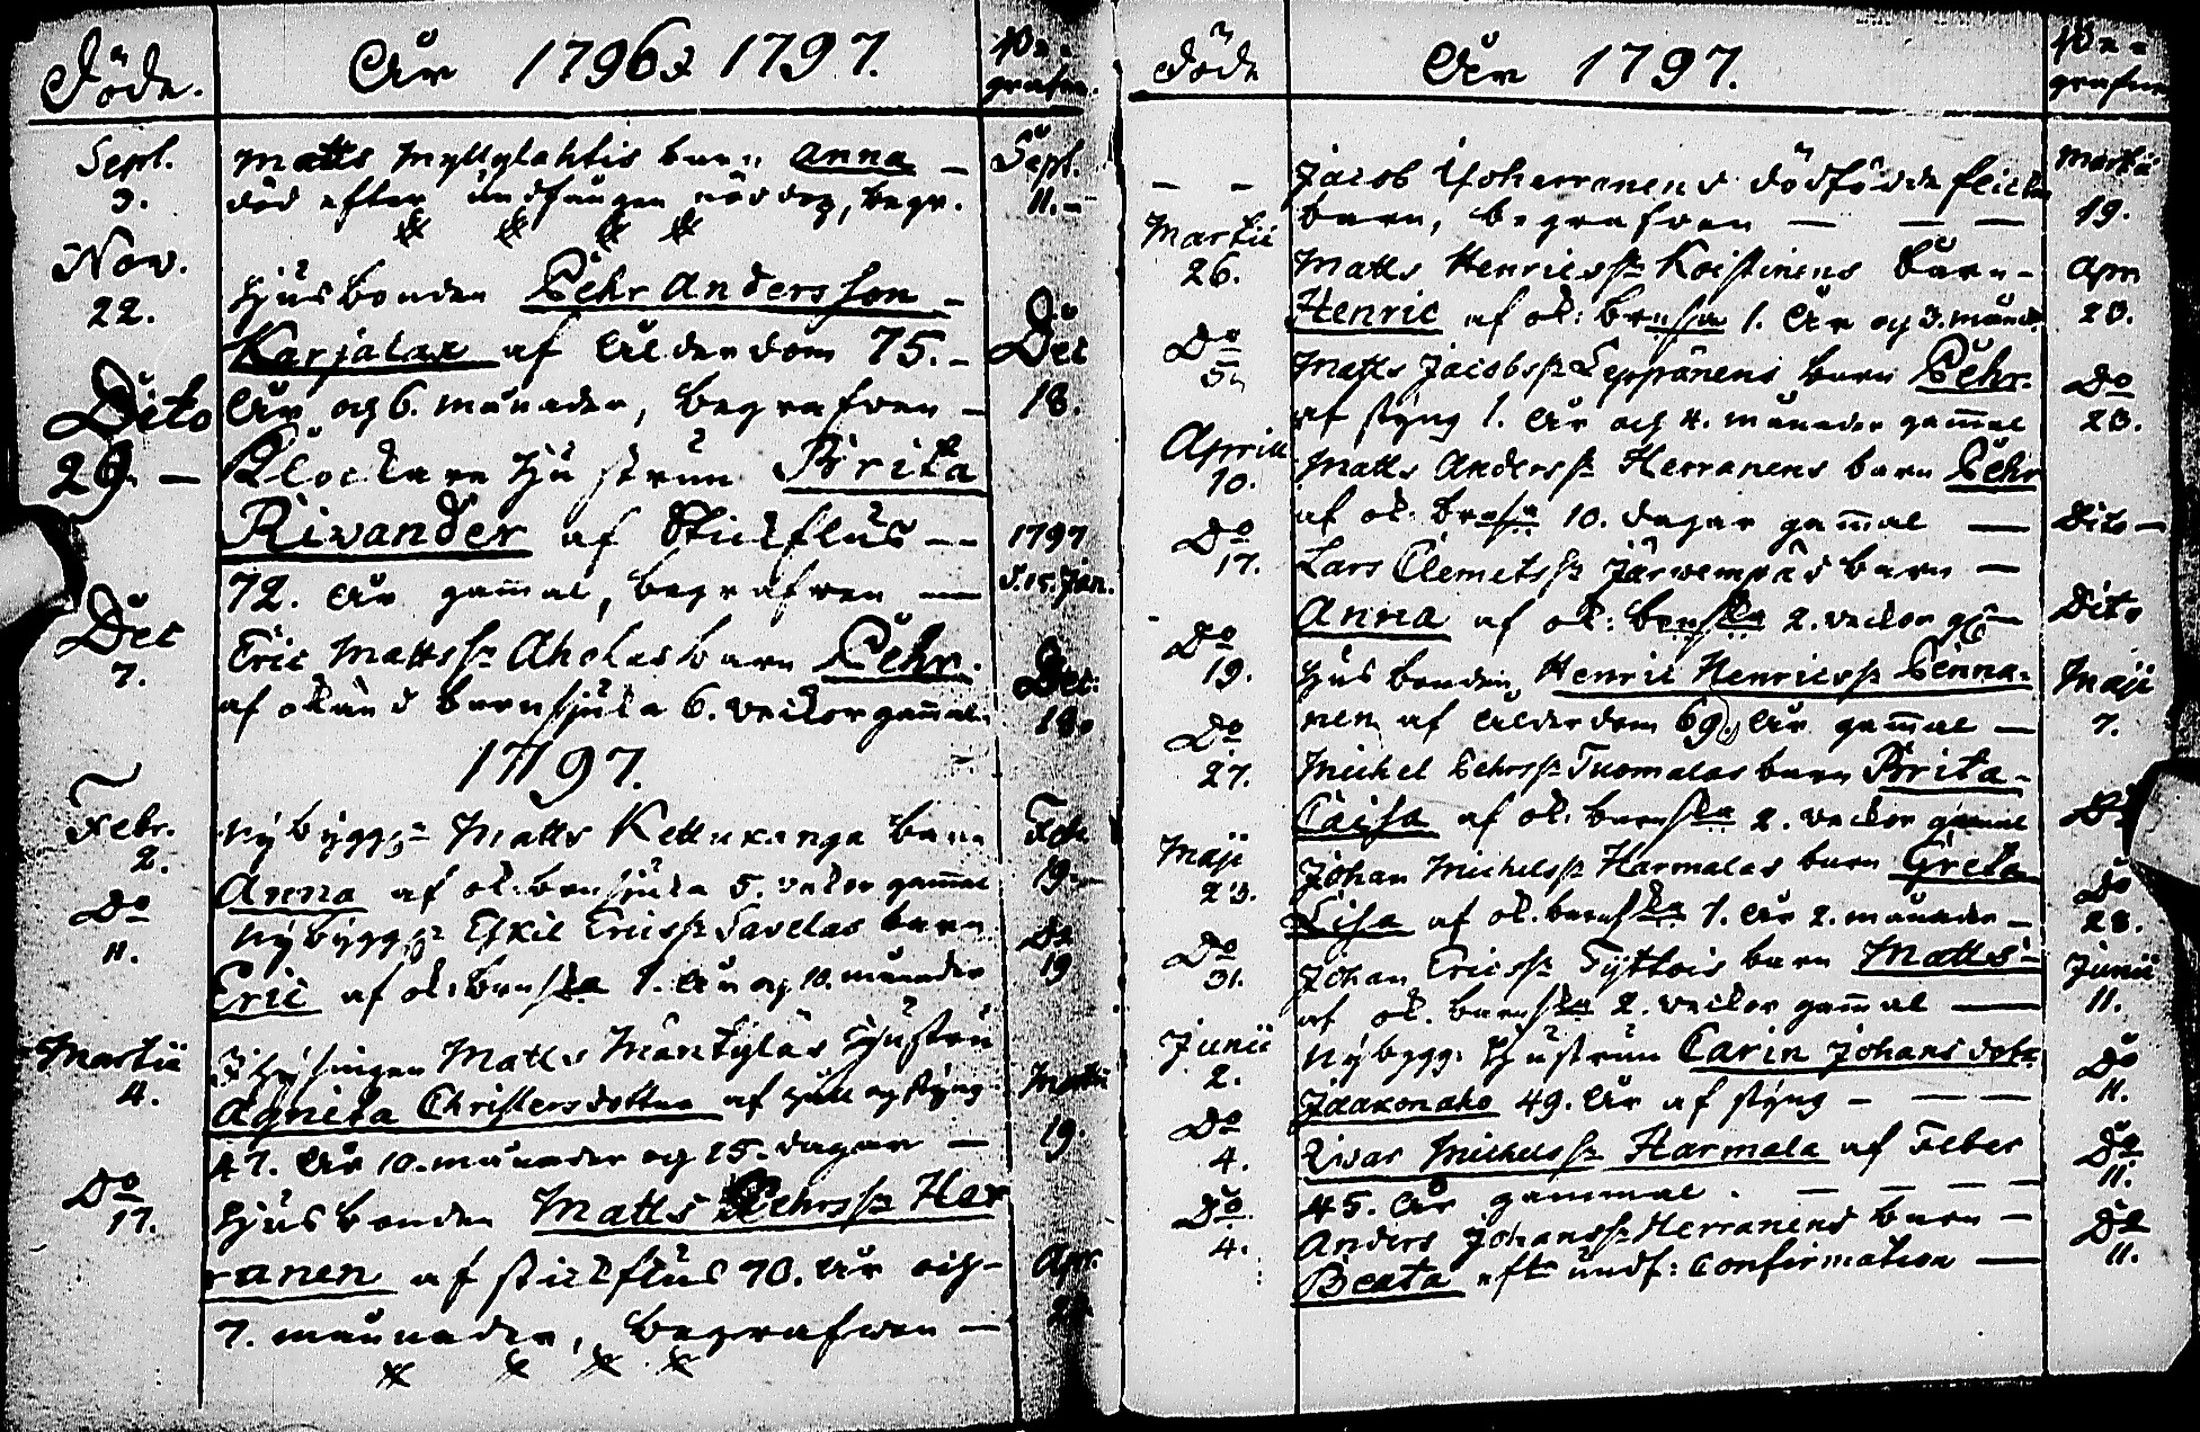 Döde. År 1796 & 1797. Be-
grafne.
Sept. Matts Myllylahtis barn Anna — Sept.
3. död efter undfången nöddop, begr. 11. —
Nov.
22. Husbonden Pehr Andersson —
Karjalax af Ålderdom 75. — Dec
Dito År och 6. månader, begrafven — 18.
29. — Klockare Hustrun Brita
Rivander af Stickfluss — 1797
72. År gammal, begrafven — d. 15. Jan.
Dec Eric Mattss. Aholas barn Pehr. Dec:
7. af okänd barnsjuka 6. veckor gammal. 18.
1797.
Febr. Nybygg. Matts Kettukanga barn Feb
2. Anna af ok: barnsjuka 5. veckor gammal 19. —
Do Nybygg. Eskil Ericss. Savelas barn Do
11. Eric af ok: barnska 1. År och 10. månader 19
Martii Inhysingen Matts Mäntyläs Hustru
4. Agneta Christersdotter af håll och styng Martii
47. År 10. månader och 25. dagar — 19.
Do
17. Husbonden Matts Pehrss. Her
ranen af stickfluss 70. År och — Apr.
7. månader, begrafven —
Döde År 1797. Be-
grafne
— — Jacob Yliherranens dödfödda flicke Martii
barn, begrafven — — — 19.
Martii
26. Matts Henricss. Koistinens Barn — Apr.
Henric af ok: barnska 1. År och 3. månad. 23.
Do Matts Jacobss. Leppänens barn Pehr. Do
af styng 1. År och 4. månader gammal 23.
Aprill
10. Matts Anderss. Herranens barn Pehr
af ok. barnska 10. dagar gammal — Dito —
Do
17. Lars Clemetss. Järvenpäs barn —
Anna af ok: barnska 2. veckor — Dito
Do
19. Husbonden Henric Henricss. Penna- Maji
nen af Ålderdom 69. År gammal — 7.
Do
27. Michel Pehrss. Tuomalas barn Brita —
Caisa af ok. barnska 2. veckor gammal Do
Maji
23. Johan Michelss. Harmalas barn Greta Do
Lisa af ok. barnska 1. År 2. månader — 28.
Do
31. Johan Ericss. Tyttois barn Matts — Junii
af ok. barnska 2. veckor gammal — 11.
Junii
2. Nybygg. Hustrun Carin Johansdotr Do
Jaakonaho 49. År af styng — — — 11.
Do
4. Ivar Michelss. Harmala af Feber Do
45. År gammal. — — — — 11.
Do
4. Anders Johanss. Herranens barn — Do
Beata eftr undf: Confirmation — 11.